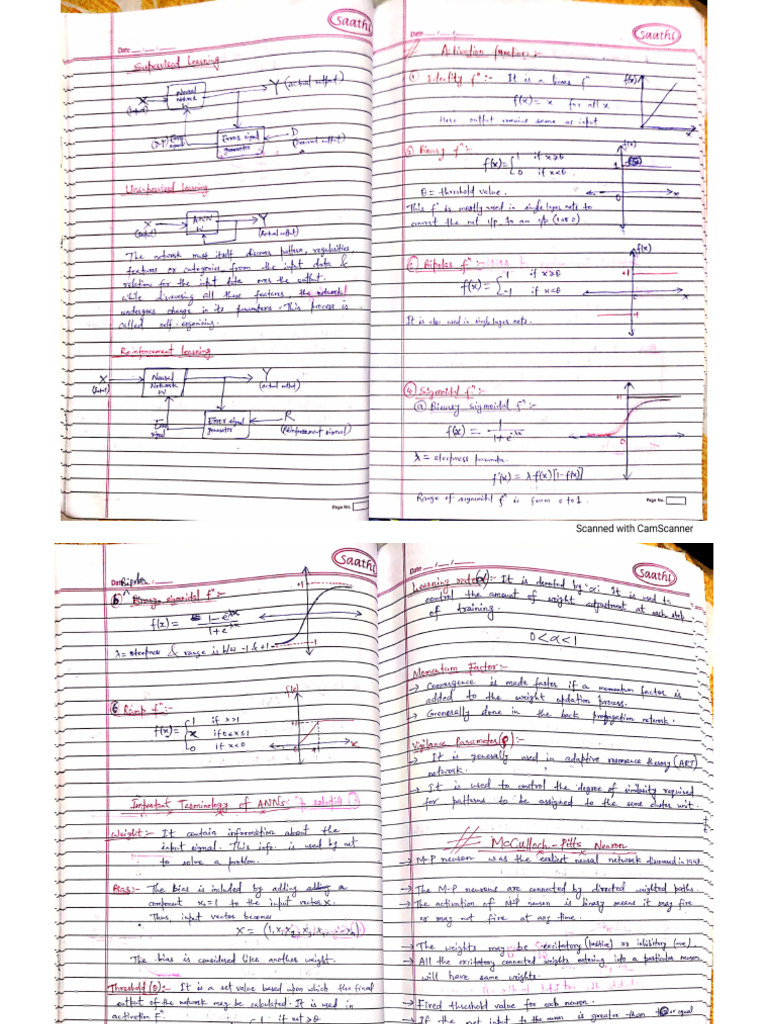 Saathi
Date
Supervised Learning
X
(Input)
Neural
W
Y (Actual output)
(D-Y)
Error signal
generator
D
(Desired output)
Unsupervised learning
X
(Input)
ANN
W
Y
(Actual output)
The network must itself discover pattern, regularities,
features or categories from the input data &
relations for the input data over the output.
while discussing all these factors, the network
undergoes change in its parameters. This process is
called self-organizing.
Reinforcement learning
X
(Input)
Neural
Network
W
Y
(Actual output)
Error
signal
Error signal
generator
R
(Reinforcement signal)
Page No.
Saathi
Date
Activation functions :-
① Identity fⁿ :- It is a linear fⁿ
f(x) = x for all x.
Here output remains same as input
f(x)
x
② Binary fⁿ :-
f(x) = { 1 if x≥θ
0 if x<θ
θ = threshold value.
This fⁿ is mostly used in single layer nets to
convert the net i/p to an o/p (1 or 0)
f(x)
1
0
x
③ Bipolar fⁿ :-
f(x) = { 1 if x≥θ
-1 if x<θ
It is also used in single layer nets.
f(x)
+1
x
-1
④ Sigmoidal fⁿ :-
ⓐ Binary sigmoidal fⁿ :-
f(x) = 1 / 1+e^-λx
λ = steepness parameter.
f'(x) = λ f(x)[1-f(x)]
Range of sigmoidal fⁿ is from 0 to 1.
Page No.
Scanned with CamScanner
Saathi
Bipolar
ⓑ Binary sigmoidal fⁿ :-
f(x) = 1-e^-λx / 1+e^-λx
λ = steepness & range is b/w -1 & +1
+1
-1
⑥ Ramp fⁿ :-
f(x) = { 1 if x>1
x if 0≤x≤1
0 if x<0
Important Terminology of ANNs :
Weight :- It contain information about the
input signal. This info. is used by net
to solve a problem.
Bias :- The bias is included by adding a
component x₀=1 to the input vector x.
Thus, input vector becomes
The bias is considered like another weight.
Threshold (θ) :- It is a set value based upon which the final
output of the network may be calculated. It is used in
activation fⁿ
if net ≥θ
Saathi
Date
Learning rate (α) :- It is denoted by 'α'. It is used to
control the amount of weight adjustment at each step
of training.
0 < α < 1
Momentum Factor :-
→ Convergence is made faster if a momentum factor is
added to the weight updation process.
→ Generally done in the back propagation network.
Vigilance Parameter (ρ) :-
→ It is generally used in adaptive resonance theory (ART)
network.
→ It is used to control the degree of similarity required
for patterns to be assigned to the same cluster unit.
McCulloch-Pitts Neuron
→ M-P neuron was the earliest neural network discovered in 1943.
→ The M-P neurons are connected by directed weighted paths.
→ The activation of M-P neuron is binary means it may fire
or may not fire at any time.
→ The weights may be excitatory (positive) or inhibitory (-ve)
→ All the excitatory connected weights entering into a particular neuron
will have same weights.
→ Fixed threshold value for each neuron.
→ If the net input to the neuron is greater than or equal